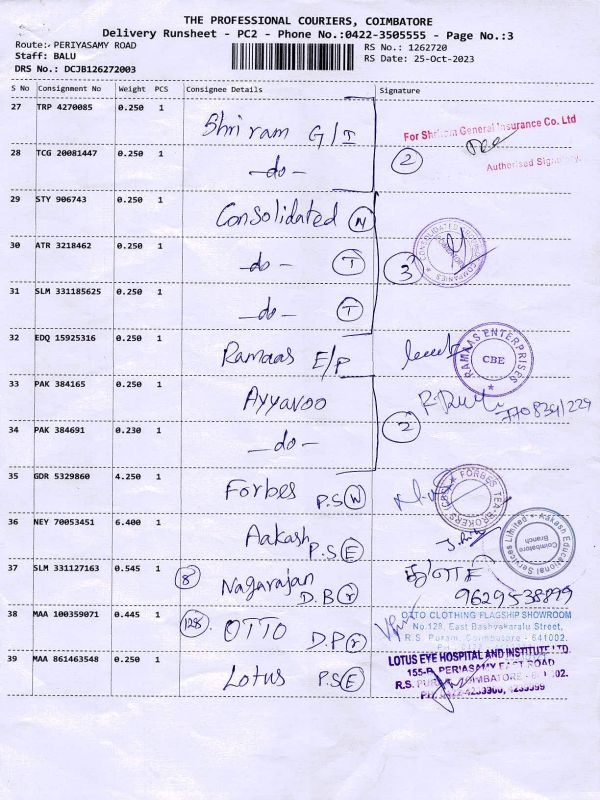 THE PROFESSIONAL COURIERS, COIMBATORE
Delivery Runsheet - PC2 - Phone No.:0422-3505555 - Page No.:3
Route: PERIYASAMY ROAD
Staff: BALU
DRS No.: DCJB126272003
RS No.: 1262720
RS Date: 25-Oct-2023
S No Consignment No Weight PCS Consignee Details Signature
27 TRP 4270085 0.250 1 Shriram G/I
For Shriram General Insurance Co. Ltd
Authorised Signatory.
28 TCG 20081447 0.250 1 -do- 2
29 STY 906743 0.250 1 Consolidated N
30 ATR 3218462 0.250 1 -do- T 3
31 SLM 331185625 0.250 1 -do- T
32 EDQ 15925316 0.250 1 Ramaas E/P
RAMAAS ENTERPRISES
CBE
33 PAK 384165 0.250 1 Ayyavoo
7708341229
34 PAK 384691 0.230 1 -do- 2
35 GDR 5329860 4.250 1 Forbes P.S W
FORBES TEA BROKERS
36 NEY 70053451 6.400 1 Aakash P.S E
Aakash Educational Services Limited
Coimbatore
Branch
37 SLM 331127163 0.545 1 8 Nagarajan D.B r
9629538899
38 MAA 100359071 0.445 1 128 OTTO D.P r
OTTO CLOTHING FLAGSHIP SHOWROOM
No.128, East Bashyakaralu Street,
R.S. Puram, Coimbatore - 641002.
39 MAA 861463548 0.250 1 Lotus P.S E
LOTUS EYE HOSPITAL AND INSTITUTE LTD.
155-B, PERIASAMY EAST ROAD